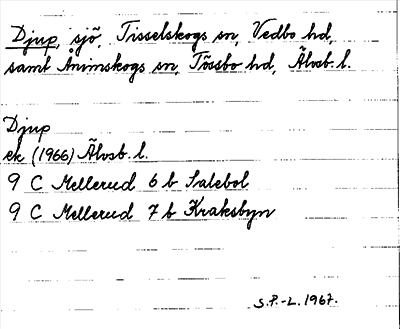 Djup, sjö, Tisselskogs sn, Vedbo hd,
samt Ånimskogs sn, Tössbo hd, Älvsb. l.
Djup
ek (1966) Älvsb. l.
9 C Mellerud 6 b Salebol
9 C Mellerud 7 b Kraksbyn
S.P.-L. 1967.